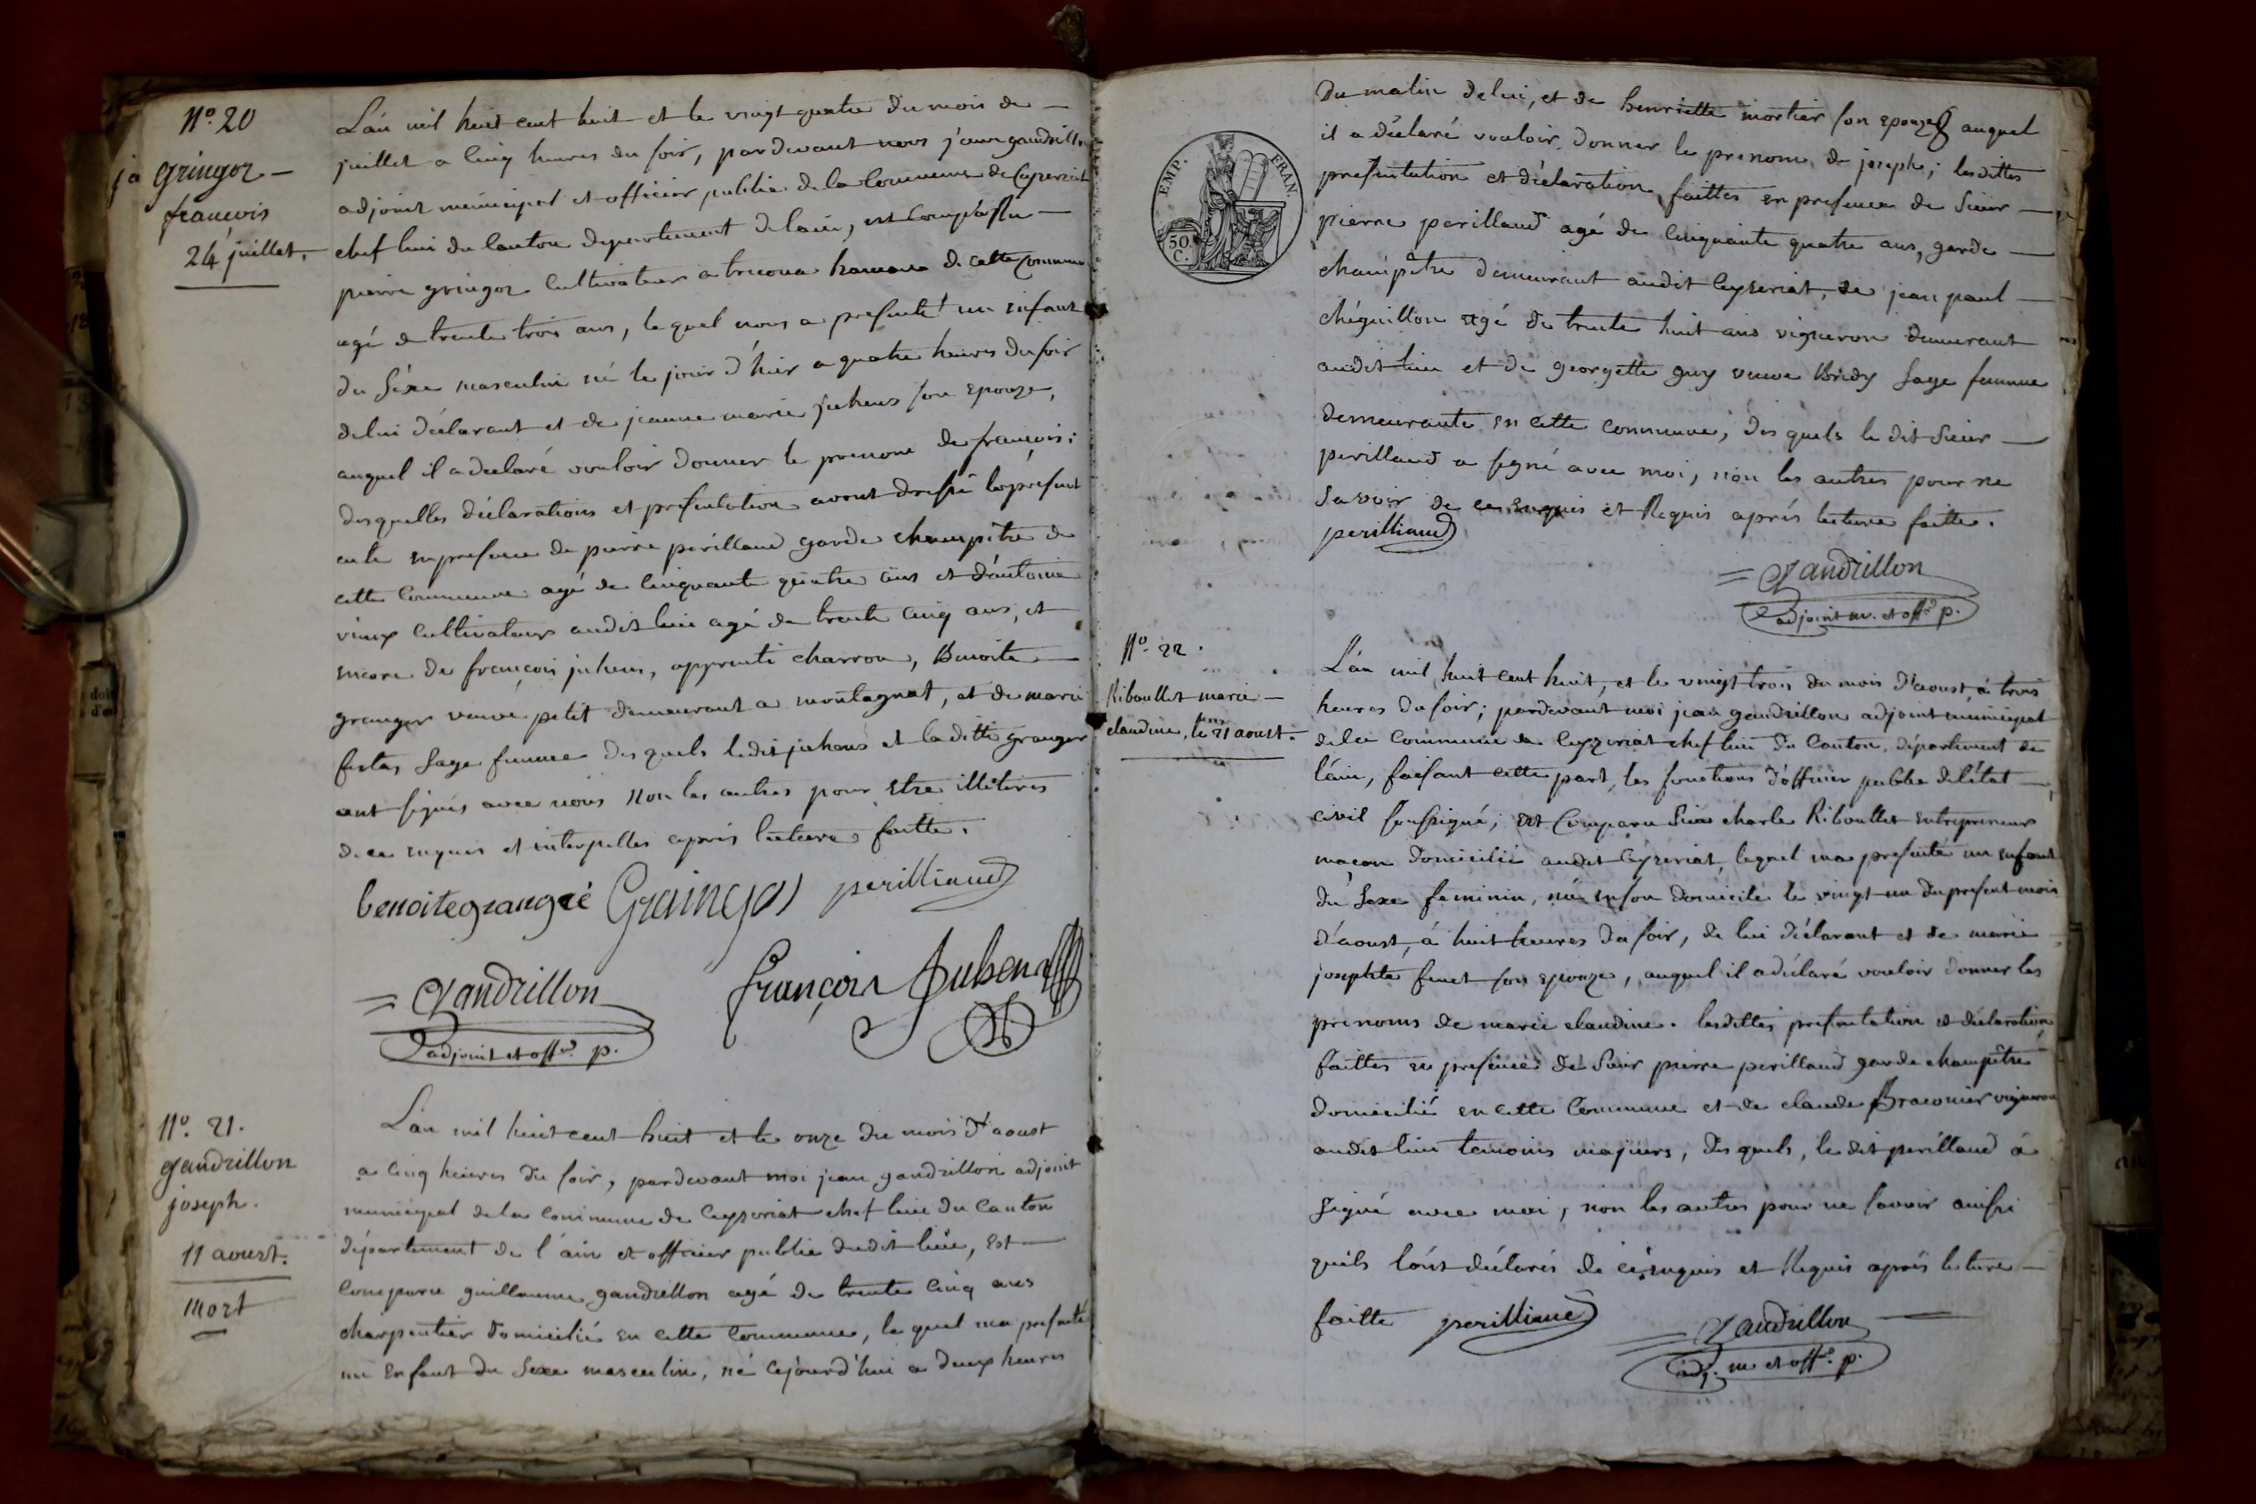 N.o 20
ja gringoz
françois
24 juillet.
L'an mil huit cent huit et le vingt quatre du mois de
juillet a cinq heures du soir, pardevant nous jean gandrillon
adjoint municipal et officier public de la commune de Ceyzeriat
chef lieu du canton departement de lain, est comparu
pierre gringoz cultivateur a hameau de cette commune
agé de trente trois ans, lequel nous a presenté un enfant
du séxe masculin né le jour d'hier a quatre heures du soir
de lui déclarant et de jeanne marie juhens son epouze,
auquel il a declaré vouloir donner le prenom de françois;
desquelles déclarations et presentation avons dressé le présent
acte en presence de pierre perillaud garde champêtre de
cette commune agé de cinquante quatre ans et d'antoine
vieux cultivateur audit lieu agé de trente cinq ans, et
encore de françois juhens, apprenti charron, Benoite
granger veuve petit demeurant a montagnat, et de marie
sage femme desquels ledit juhens et la ditte granger
ont signés avec nous non les autres pour etre illétirés
de ce enquis et interpellés après lecture faitte.
benoitegrangé Graingos perilliaud
= Gandrillon
adjoint et off.er p.
françois Juhen
N.o 21.
gandrillon
joseph.
11 aoust.
mort
L'an mil huit cent huit et le onze du mois d'aoust
a cinq heures du soir, pardevant moi jean gandrillon adjoint
municipal de la commune de Ceyzeriat chef lieu du canton
département de l'ain et officier public dudit lieu, est
comparu guillaume gandrillon agé de trente cinq ans
charpentier domicilié en cette commune, lequel ma presenté
un enfant du sexe masculin, né cejourd'hui a deux heures
EMP. FRAN.
50.
C.
Du matin de lui, et de henriette mortier son epouze auquel
il a déclaré vouloir donner le prenom de joseph; lesdittes
presentation et déclaration faittes en presence de sieur
pierre perillaud agé de cinquante quatre ans, garde
champêtre demeurant audit Ceyzeriat, de jean paul
chéguillon agé de trente huit ans vigneron demeurant
audit lieu et de georgette guy veuve Bridy sage femme
demeurante en cette commune, des quels le dit sieur
perillaud a signé avec moi, non les autres pour ne
savoir de ce enquis et Requis après lecture faitte.
perilliaud
= Gandrillon
adjoint m. et off.er p.
N.o 22.
Riboullet marie
claudine, le 21 aoust.
L'an mil huit cent huit, et le vingt trois du mois d'aoust, à trois
heures du soir; pardevant moi jean gandrillon adjoint municipal
de la commune de Ceyzeriat chef lieu du canton, département de
l'ain, faisant cette part, les fonctions d'officier public de l'état
civil soussigné; est comparu Sieur charle Riboullet entrepreneur
maçon domicilié audit Ceyzeriat, lequel ma presenté un enfant
du sexe feminin, né en son domicile le vingt un du present mois
d'aoust, à huit heures du soir, de lui déclarant et de marie
josephte son epouze, auquel il a déclaré vouloir donner les
prenoms de marie claudine. lesdittes presentation et déclaration
faittes en presence de Sieur pierre perillaud garde champêtre
domicilié en cette commune et de claude Braconier vigneron
audit lieu temoins majeurs, desquels, le dit perillaud à
signé avec moi, non les autres pour ne savoir ainsi
qu'ils l'ont déclarés de ce enquis et Requis après lecture
faitte perilliaud
= Gandrillon
adj. m. et off.er p.